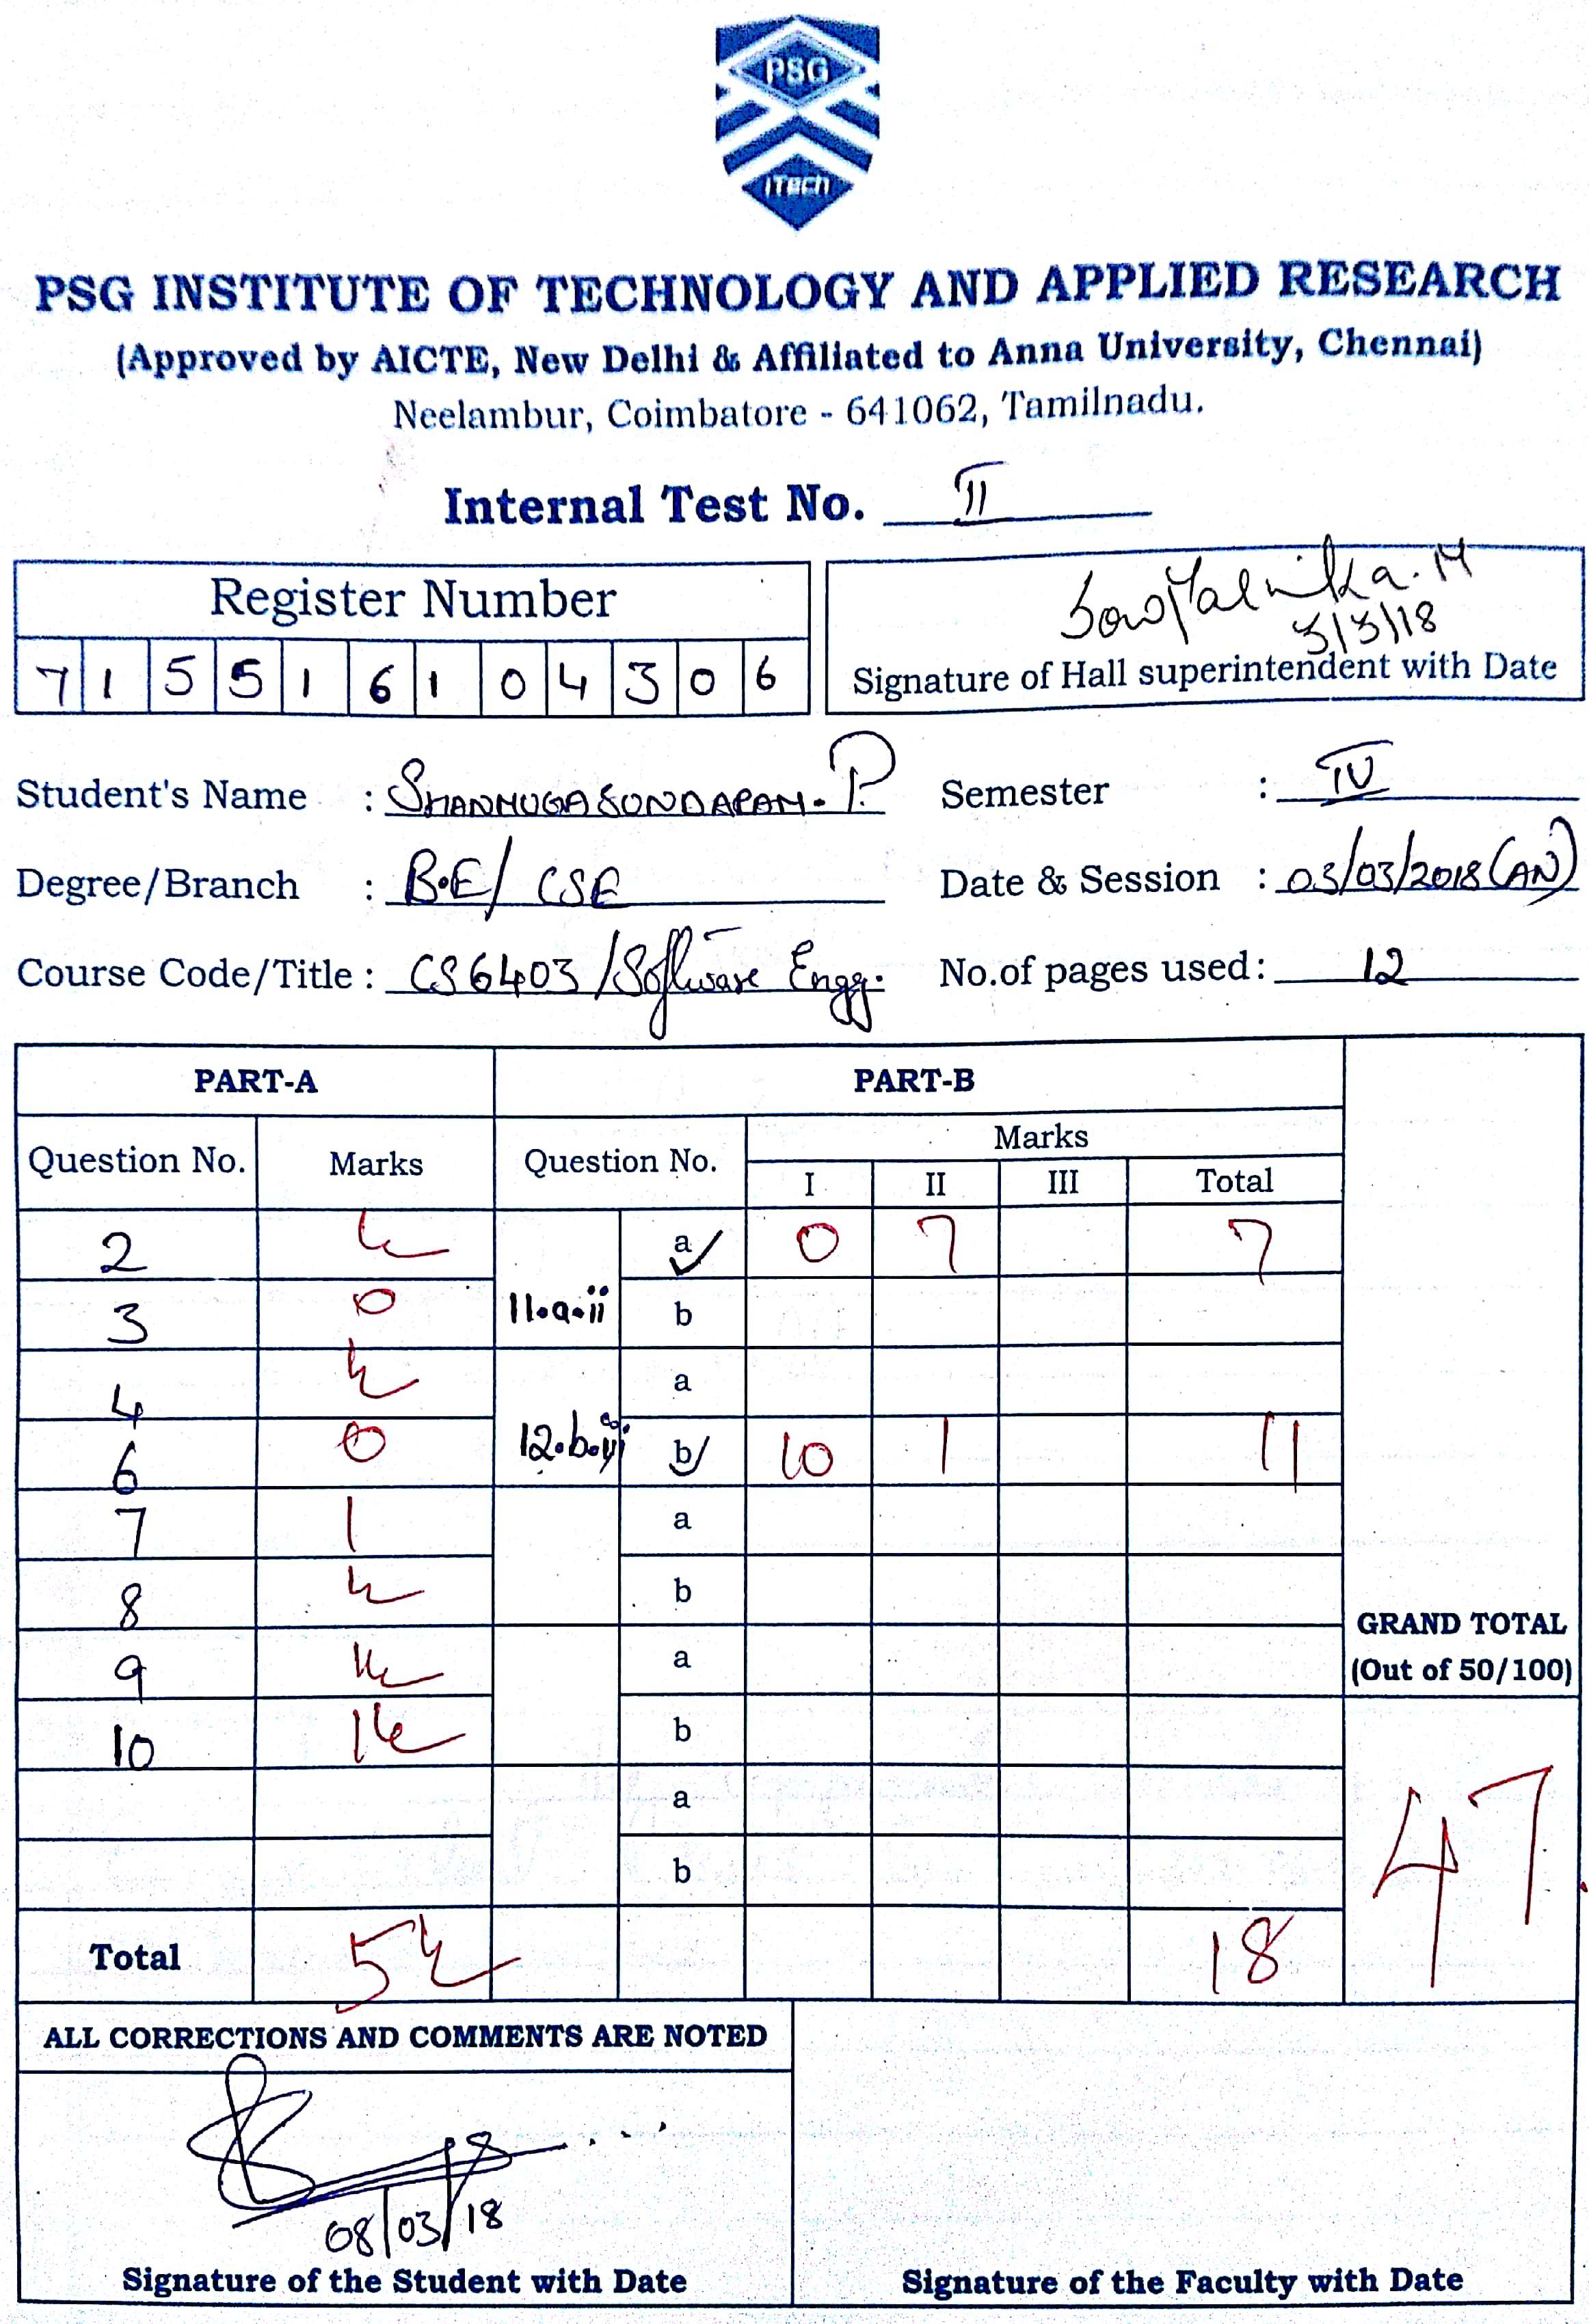 PSG
iTech
PSG INSTITUTE OF TECHNOLOGY AND APPLIED RESEARCH
(Approved by AICTE, New Delhi & Affiliated to Anna University, Chennai)
Neelambur, Coimbatore - 641062, Tamilnadu.
Internal Test No. II
Register Number
7 1 5 5 1 6 1 0 4 3 0 6
3/3/18
Signature of Hall superintendent with Date
Student's Name : SHANMUGASUNDARAM. P. Semester : IV
Degree/Branch : B.E/ CSE Date & Session : 03/03/2018 (AN)
Course Code/Title : CS6403 /Software Engg. No.of pages used: 12
PART-A PART-B
Question No. Marks Question No. Marks
I II III Total
2 ½ 11.a.ii a 0 7 7
3 0 b
4 ½ 12.b. a
6 0 b 10 1 11
7 1 a
8 ½ b
9 1½ a
10 1½ b
a
b
GRAND TOTAL
(Out of 50/100)
47
Total 5½ 18
ALL CORRECTIONS AND COMMENTS ARE NOTED
08/03/18
Signature of the Student with Date Signature of the Faculty with Date